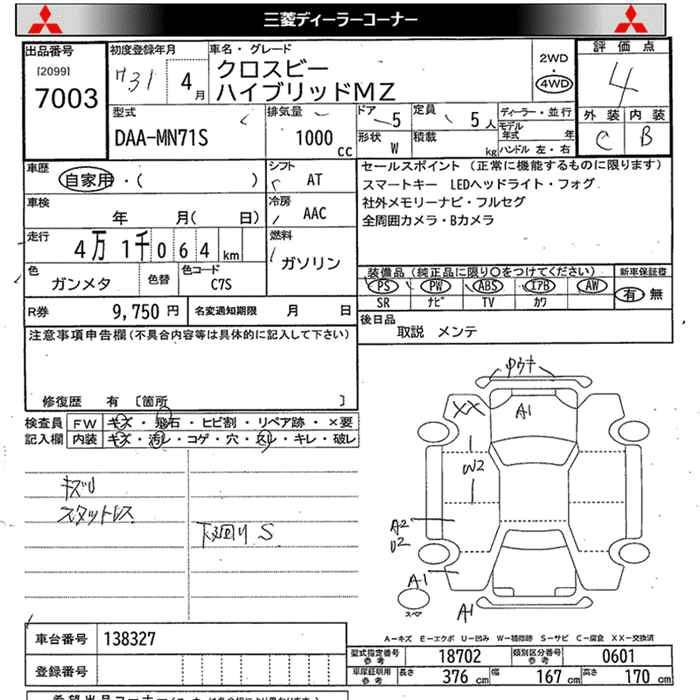 三菱ディーラーコーナー
出品番号
[2099]
7003
初度登録年月
H31 4月
車名・グレード
クロスビー
ハイブリッドMZ
2WD
・
4WD
評価点
4
外装 内装
C B
型式
DAA-MN71S
排気量
1000 cc
ドア
5
定員
5人
形状
W
積載
kg
ディーラー・並行
モデル年式 年
ハンドル 左・右
車歴
自家用・( )
シフト
AT
車検
年 月( 日)
冷房
AAC
走行
4万1千064km
燃料
ガソリン
色
ガンメタ
色替
色コード
C7S
R券
9,750円
名変通知期限 月 日
セールスポイント(正常に機能するものに限ります)
スマートキー LEDヘッドライト・フォグ
社外メモリーナビ・フルセグ
全周囲カメラ・Bカメラ
装備品(純正品に限り○をつけてください)
PS PW ABS エアB AW
SR ナビ TV カワ
新車保証書
有・無
後日品
取説 メンテ
注意事項申告欄(不具合内容等は具体的に記入して下さい)
修復歴 有 〔箇所 〕
検査員記入欄
FW キズ・飛石・ヒビ割・リペア跡・×要
内装 キズ・汚レ・コゲ・穴・スレ・キレ・破レ
キズU
スタットレス
下回りS
XX
A1
W2
A2
U2
A1
スペア
A1
A－キズ E－エクボ U－凹み W－補修跡 S－サビ C－腐食 XX－交換済
車台番号
138327
登録番号
型式指定番号参考
18702
類別区分番号参考
0601
車庫証明用参考
長さ 376 cm 幅 167 cm 高さ 170 cm
希望出品コーナー